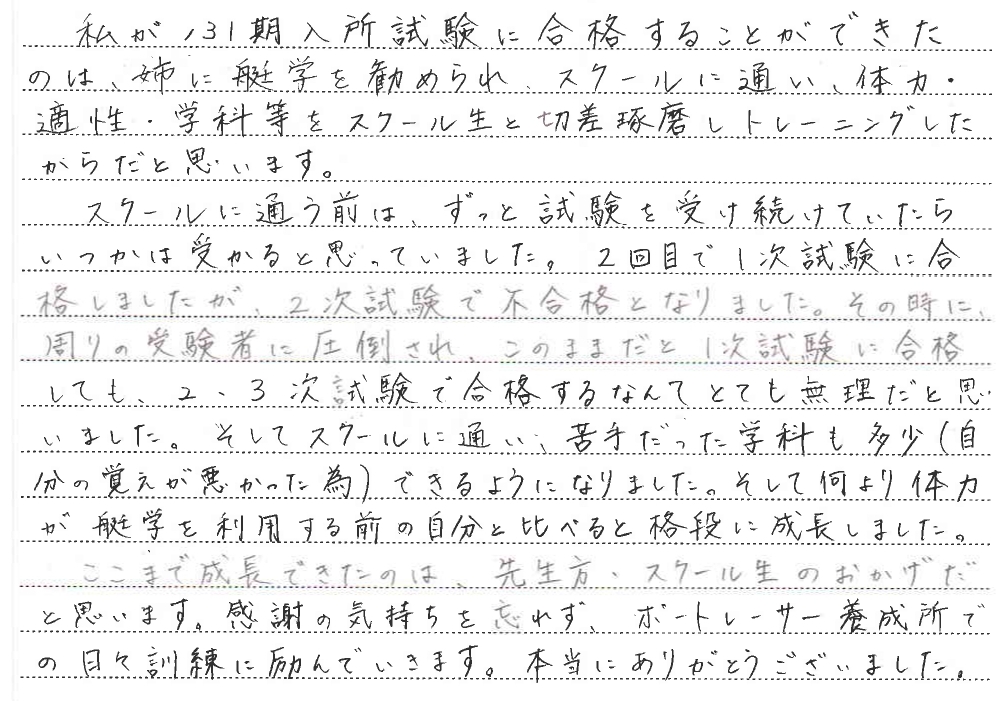 私が131期入所試験に合格することができた
のは、姉に艇学を勧められ、スクールに通い、体力・
適性・学科等をスクール生と切差琢磨しトレーニングした
からだと思います。
スクールに通う前は、ずっと試験を受け続けていたら
いつかは受かると思っていました。2回目で1次試験に合
格しましたが、2次試験で不合格となりました。その時に、
周りの受験者に圧倒され、このままだと1次試験に合格
しても、2、3次試験で合格するなんてとても無理だと思
いました。そしてスクールに通い、苦手だった学科も多少(自
分の覚えが悪かった為)できるようになりました。そして何より体力
が艇学を利用する前の自分と比べると格段に成長しました。
ここまで成長できたのは、先生方・スクール生のおかげだ
と思います。感謝の気持ちを忘れず、ボートレーサー養成所で
の日々訓練に励んでいきます。本当にありがとうございました。